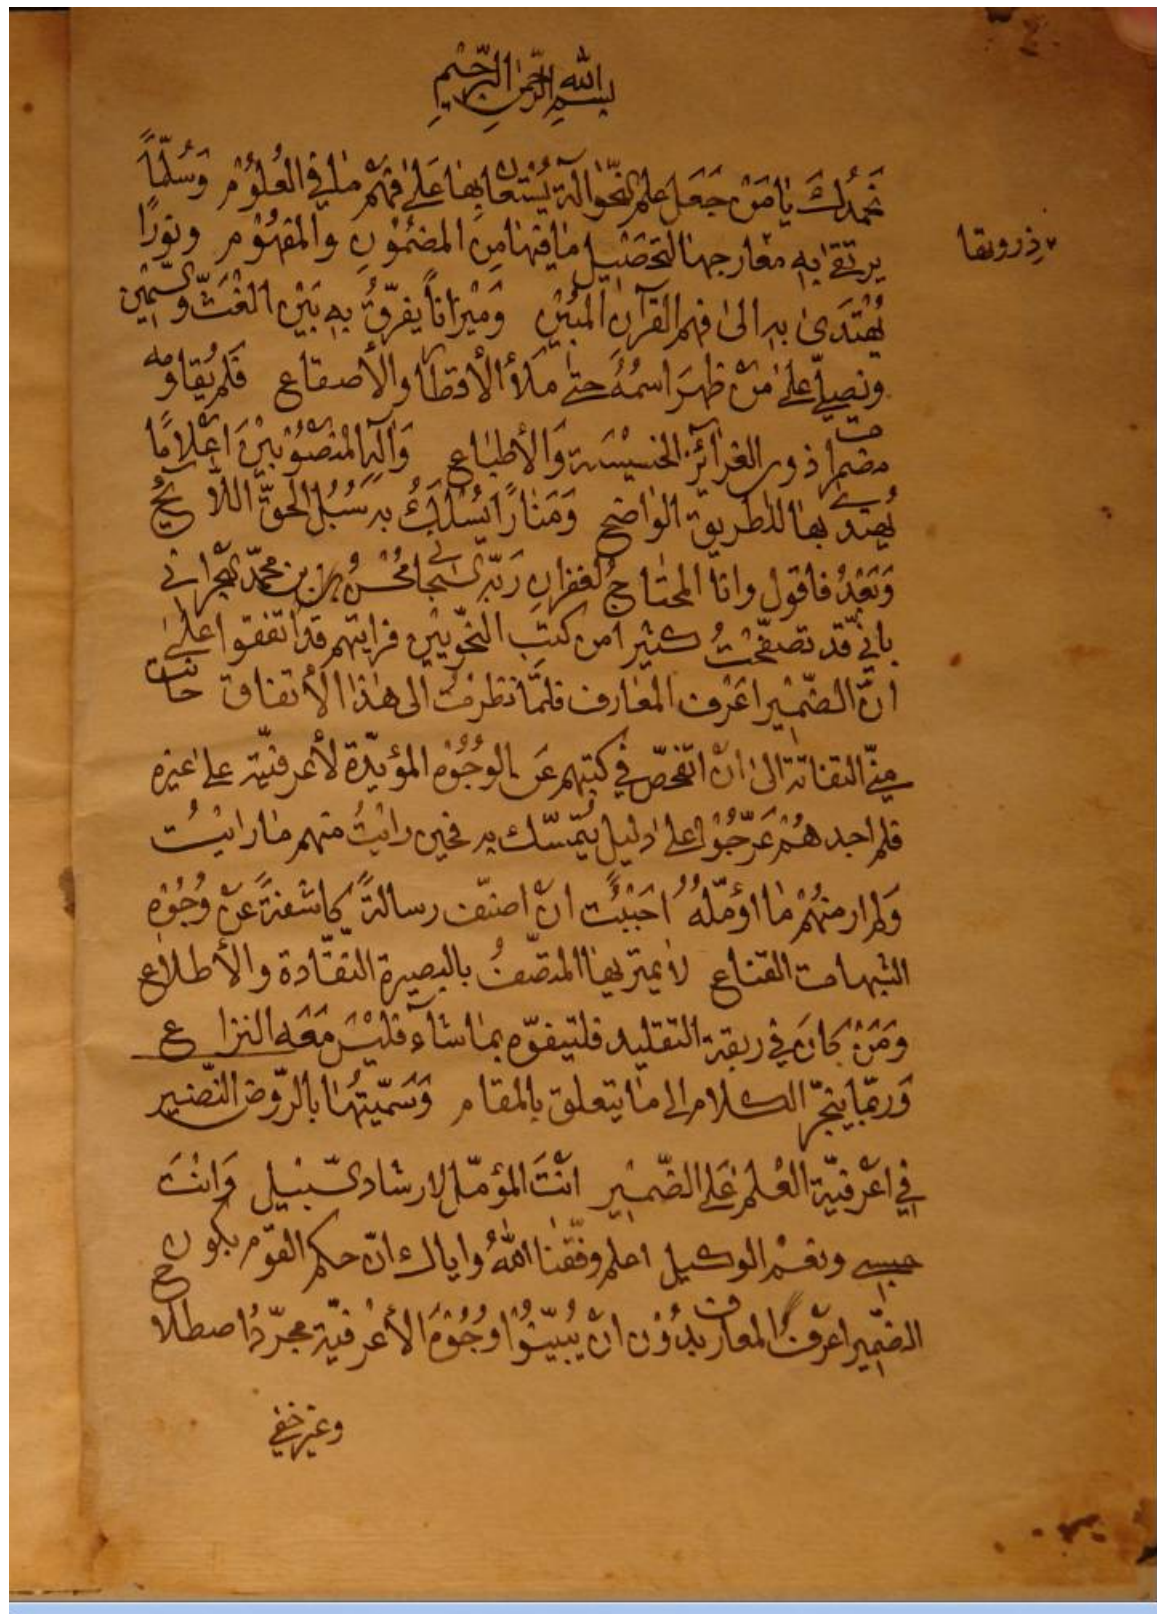 بسم الله الرحمن الرحيم
نحمدك يا من جعل علم النحو آلة يستعان بها على فهم ما في العلوم وسلّماً
يرتقى به معارجها لتحصيل ما فيها من المضمون والمفهوم ونورًا
يهتدى به الى فهم القرآن المبين وميزاناً يفرق به بين الغث والسمين
ونصلي على من ظهر اسمه حتى ملأ الأقطار والأصقاع فلم يقاومه
ذوى الغرائز الخسيسة والأطباع وآله المنصوبين اعلامًا
يهتدى بها للطريق الواضح ومنارًا يسلك به سبل الحق اللائح
وبعد فاقول وانا المحتاج لغفران ربه السبحاني محسن بن محمد البحراني
باني قد تصفحت كثيرا من كتب النحويين فرايتهم قد اتفقوا على
ان الضمير اعرف المعارف فلما نظرت الى هذا الأتفاق حانت
مني التفاتة الى ان اتفحص في كتبهم عن الوجوه المؤيدة لأعرفيته على غيره
فلم اجدهم عرجوا على دليل يتمسك به فحين رايت منهم ما رايت
ولم ار منهم ما اؤمله احببت ان اصنف رسالة كاشفة عن وجوه
الشبهات القناع لا يمتريها المتصف بالبصيرة النقادة والأطلاع
ومن كان في ربقة التقليد فليتفوه بما شاء فليس معه النزاع
وربما ينجر الكلام الى ما يتعلق بالمقام وسميتها بالروض النضير
في اعرفية العلم على الضمير انت المؤمل لارشاد السبيل وانت
حسبي ونعم الوكيل اعلم وفقنا الله واياك ان حكم القوم بكون
الضمير اعرف المعارف بدون ان يبينوا وجوه الأعرفية مجرد اصطلاح
وغير خفي